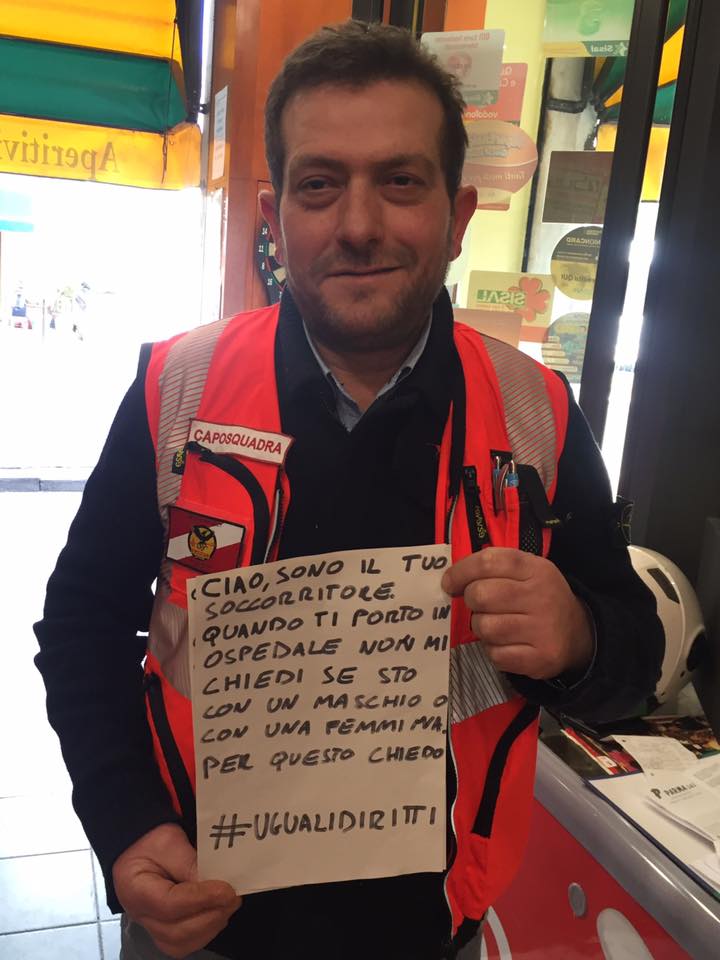 Aperitivi
Sisal
vodafone
SISAL
CAPOSQUADRA
CIAO, SONO IL TUO
SOCCORRITORE.
QUANDO TI PORTO IN
OSPEDALE NON MI
CHIEDI SE STO
CON UN MASCHIO O
CON UNA FEMMINA.
PER QUESTO CHIEDO
#UGUALIDIRITTI
P PARMA